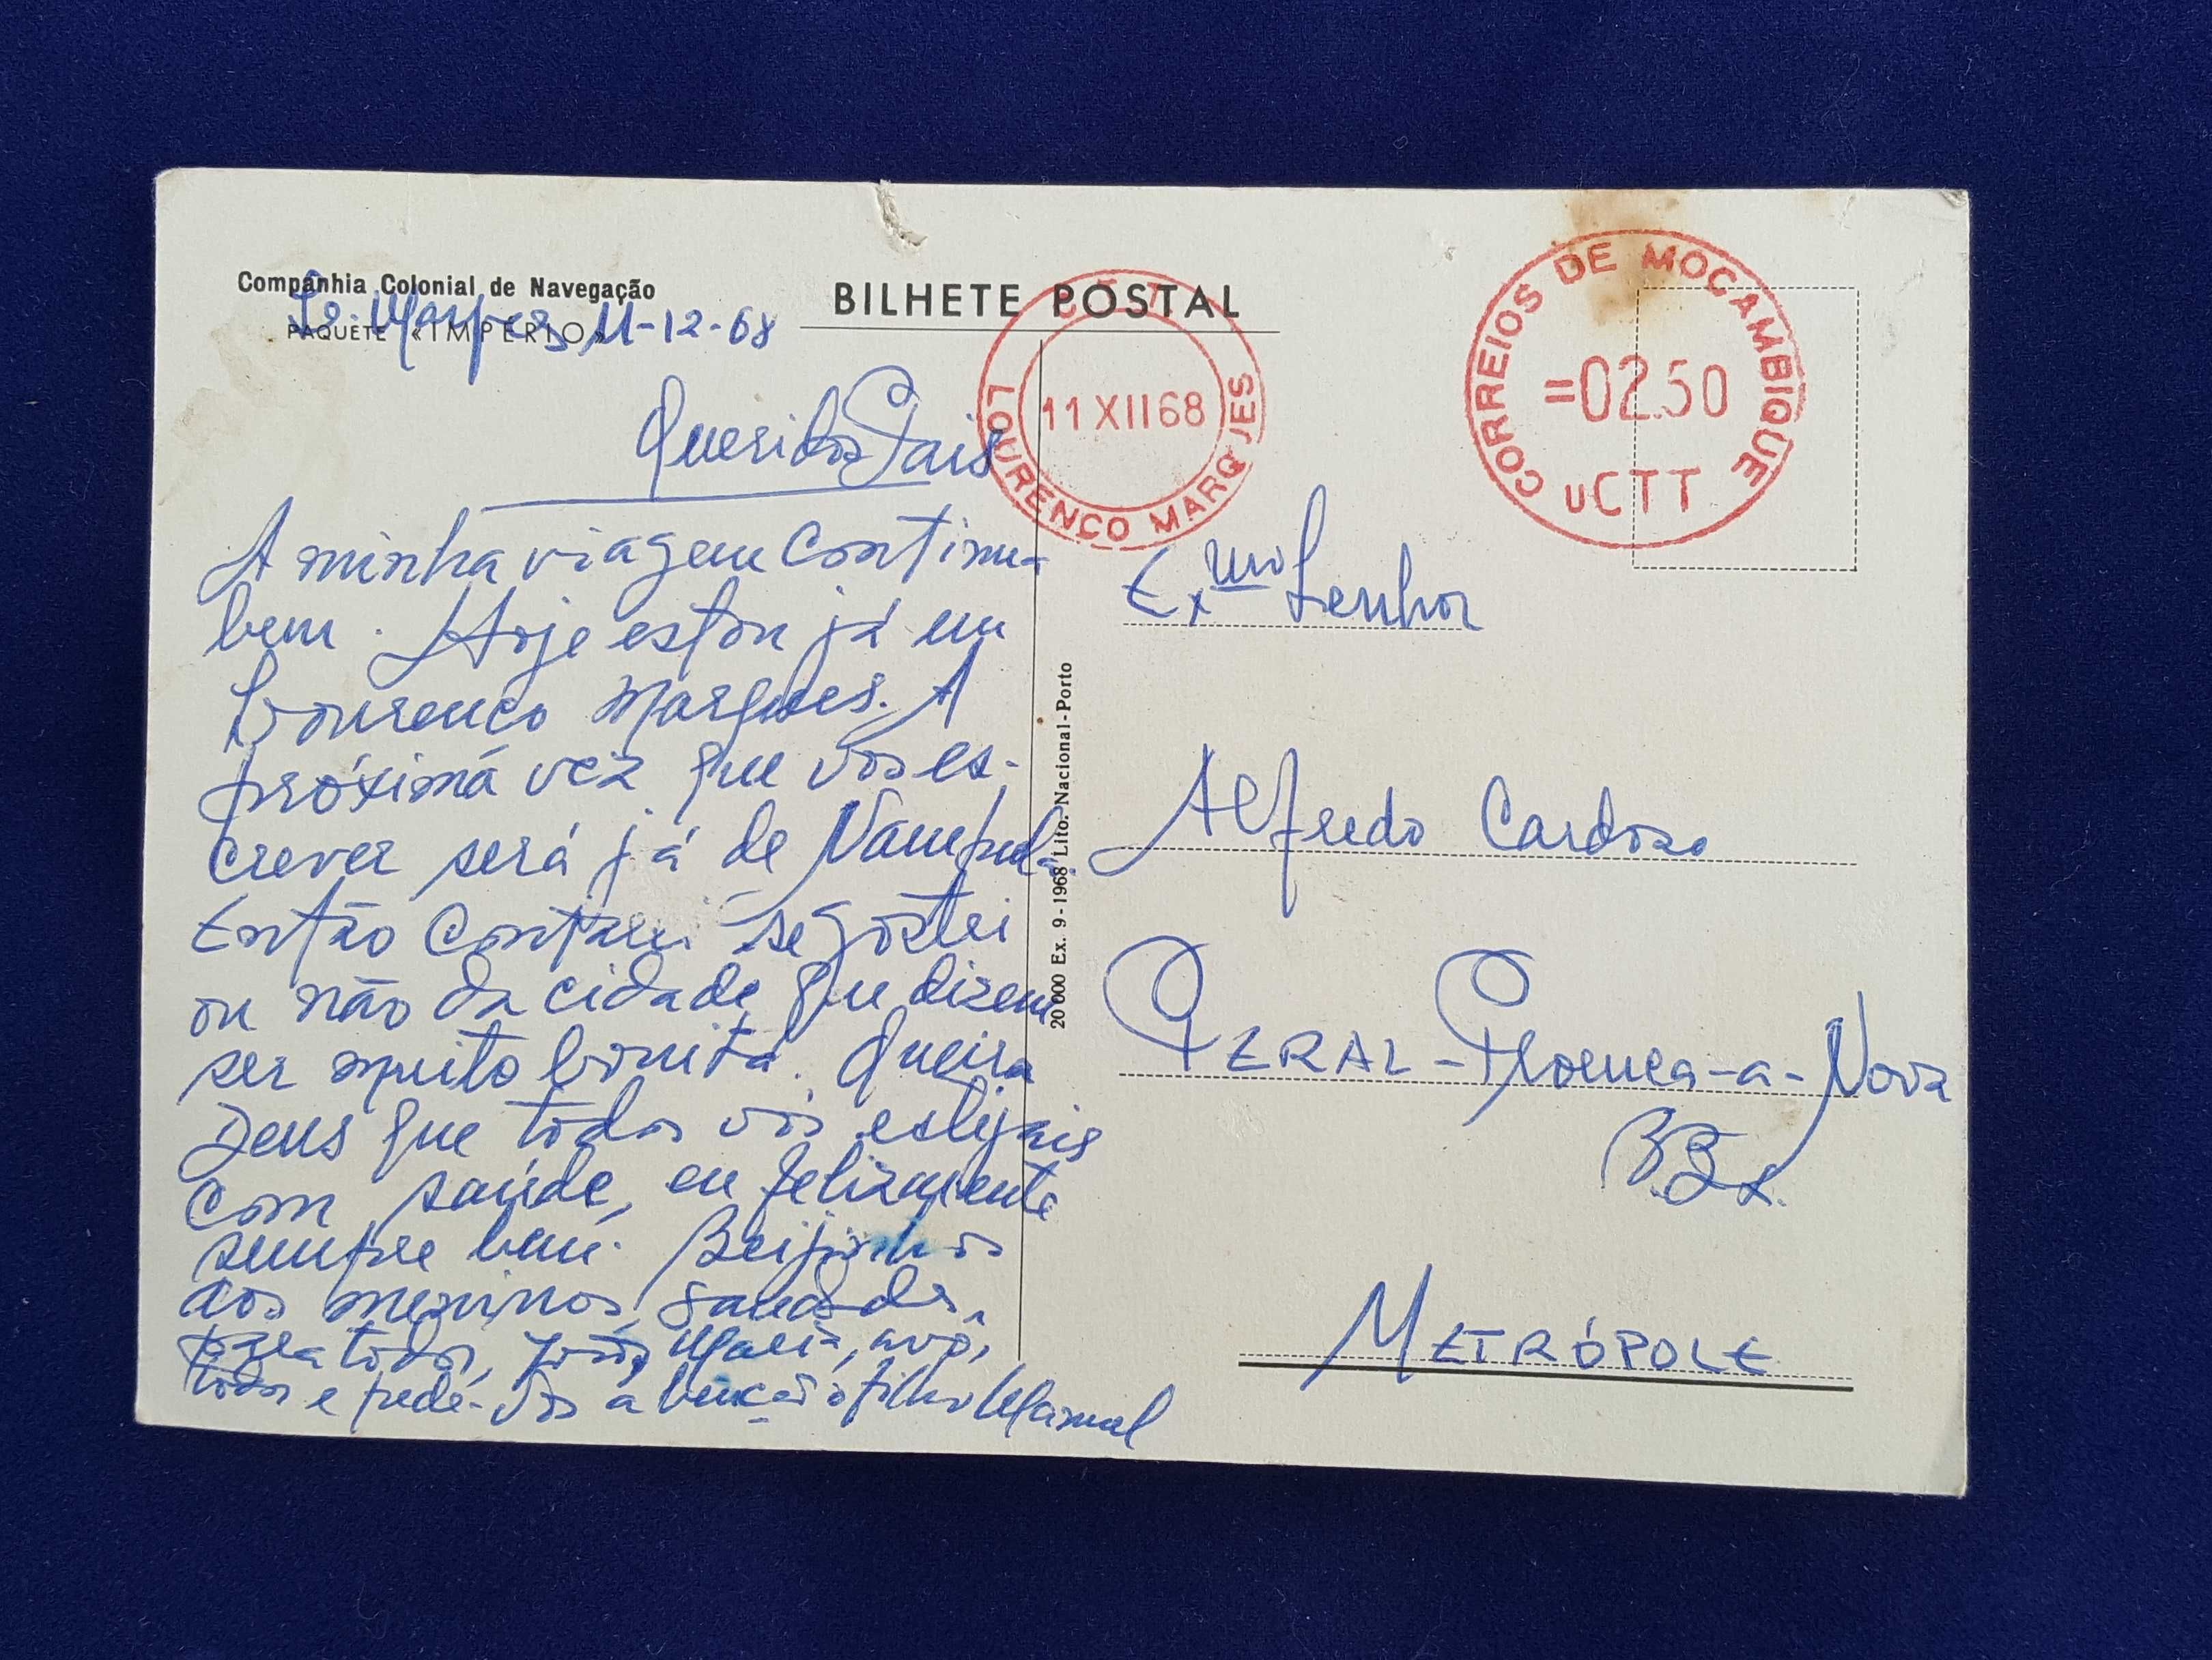 Companhia Colonial de Navegação
PAQUETE «IMPÉRIO»
BILHETE POSTAL
11-12-68
Queridos Pais
A minha viagem continua
bem. Hoje estou já em
Lourenço Marques. A
próxima vez que vos es-
crever será já de Nampula.
Então contarei se gostei
ou não da cidade que dizem
ser muito bonita. Queira
Deus que todos vós estejais
com saúde, eu felizmente
sempre bem. Beijinhos
aos meninos, saudades
para todos, Maria, avó,
todos e pede-vos a benção o filho Manuel
CTT
LOURENÇO MARQUES
11 XII 68
CORREIOS DE MOÇAMBIQUE
=02.50
uCTT
Exmo Senhor
Alfredo Cardoso
GERAL - Proença-a-Nova
METRÓPOLE
20 000 Ex. 9-1968 Lito. Nacional-Porto